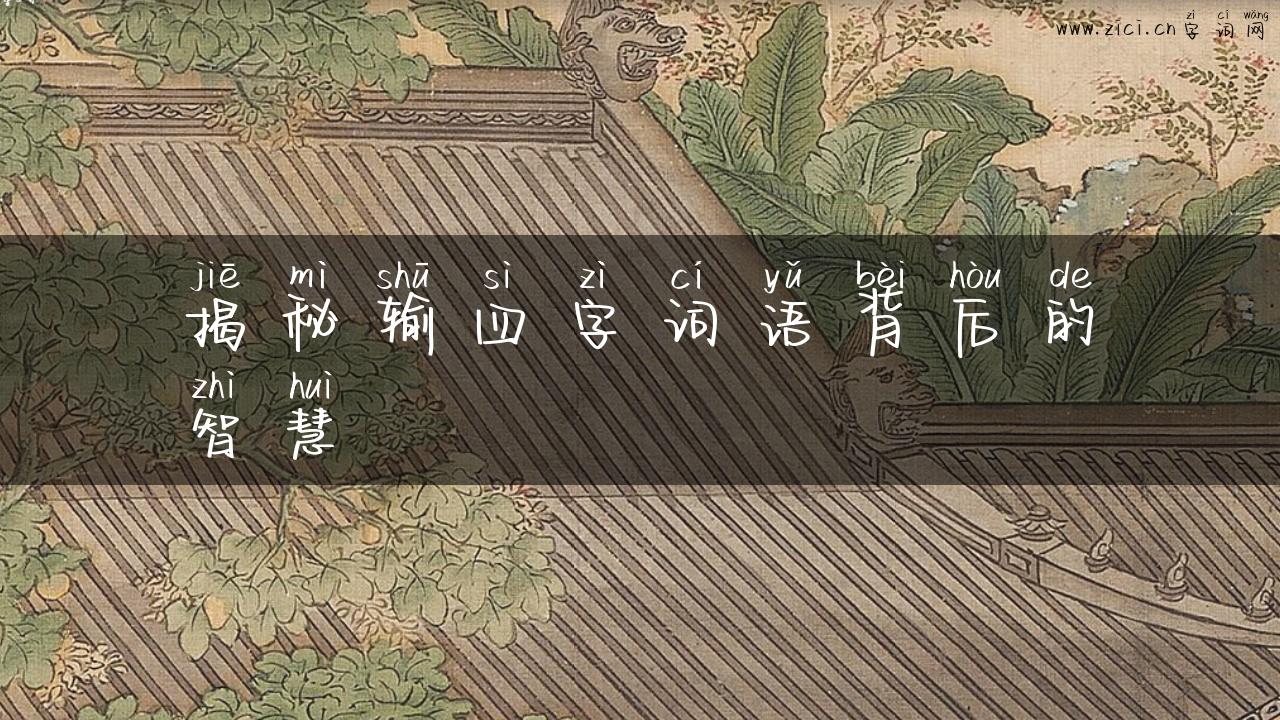 zì cí wǎng
www.zici.cn 字 词 网
jiē mì shū sì zì cí yǔ bèi hòu de
揭 秘 输 四 字 词 语 背 后 的
zhì huì
智 慧